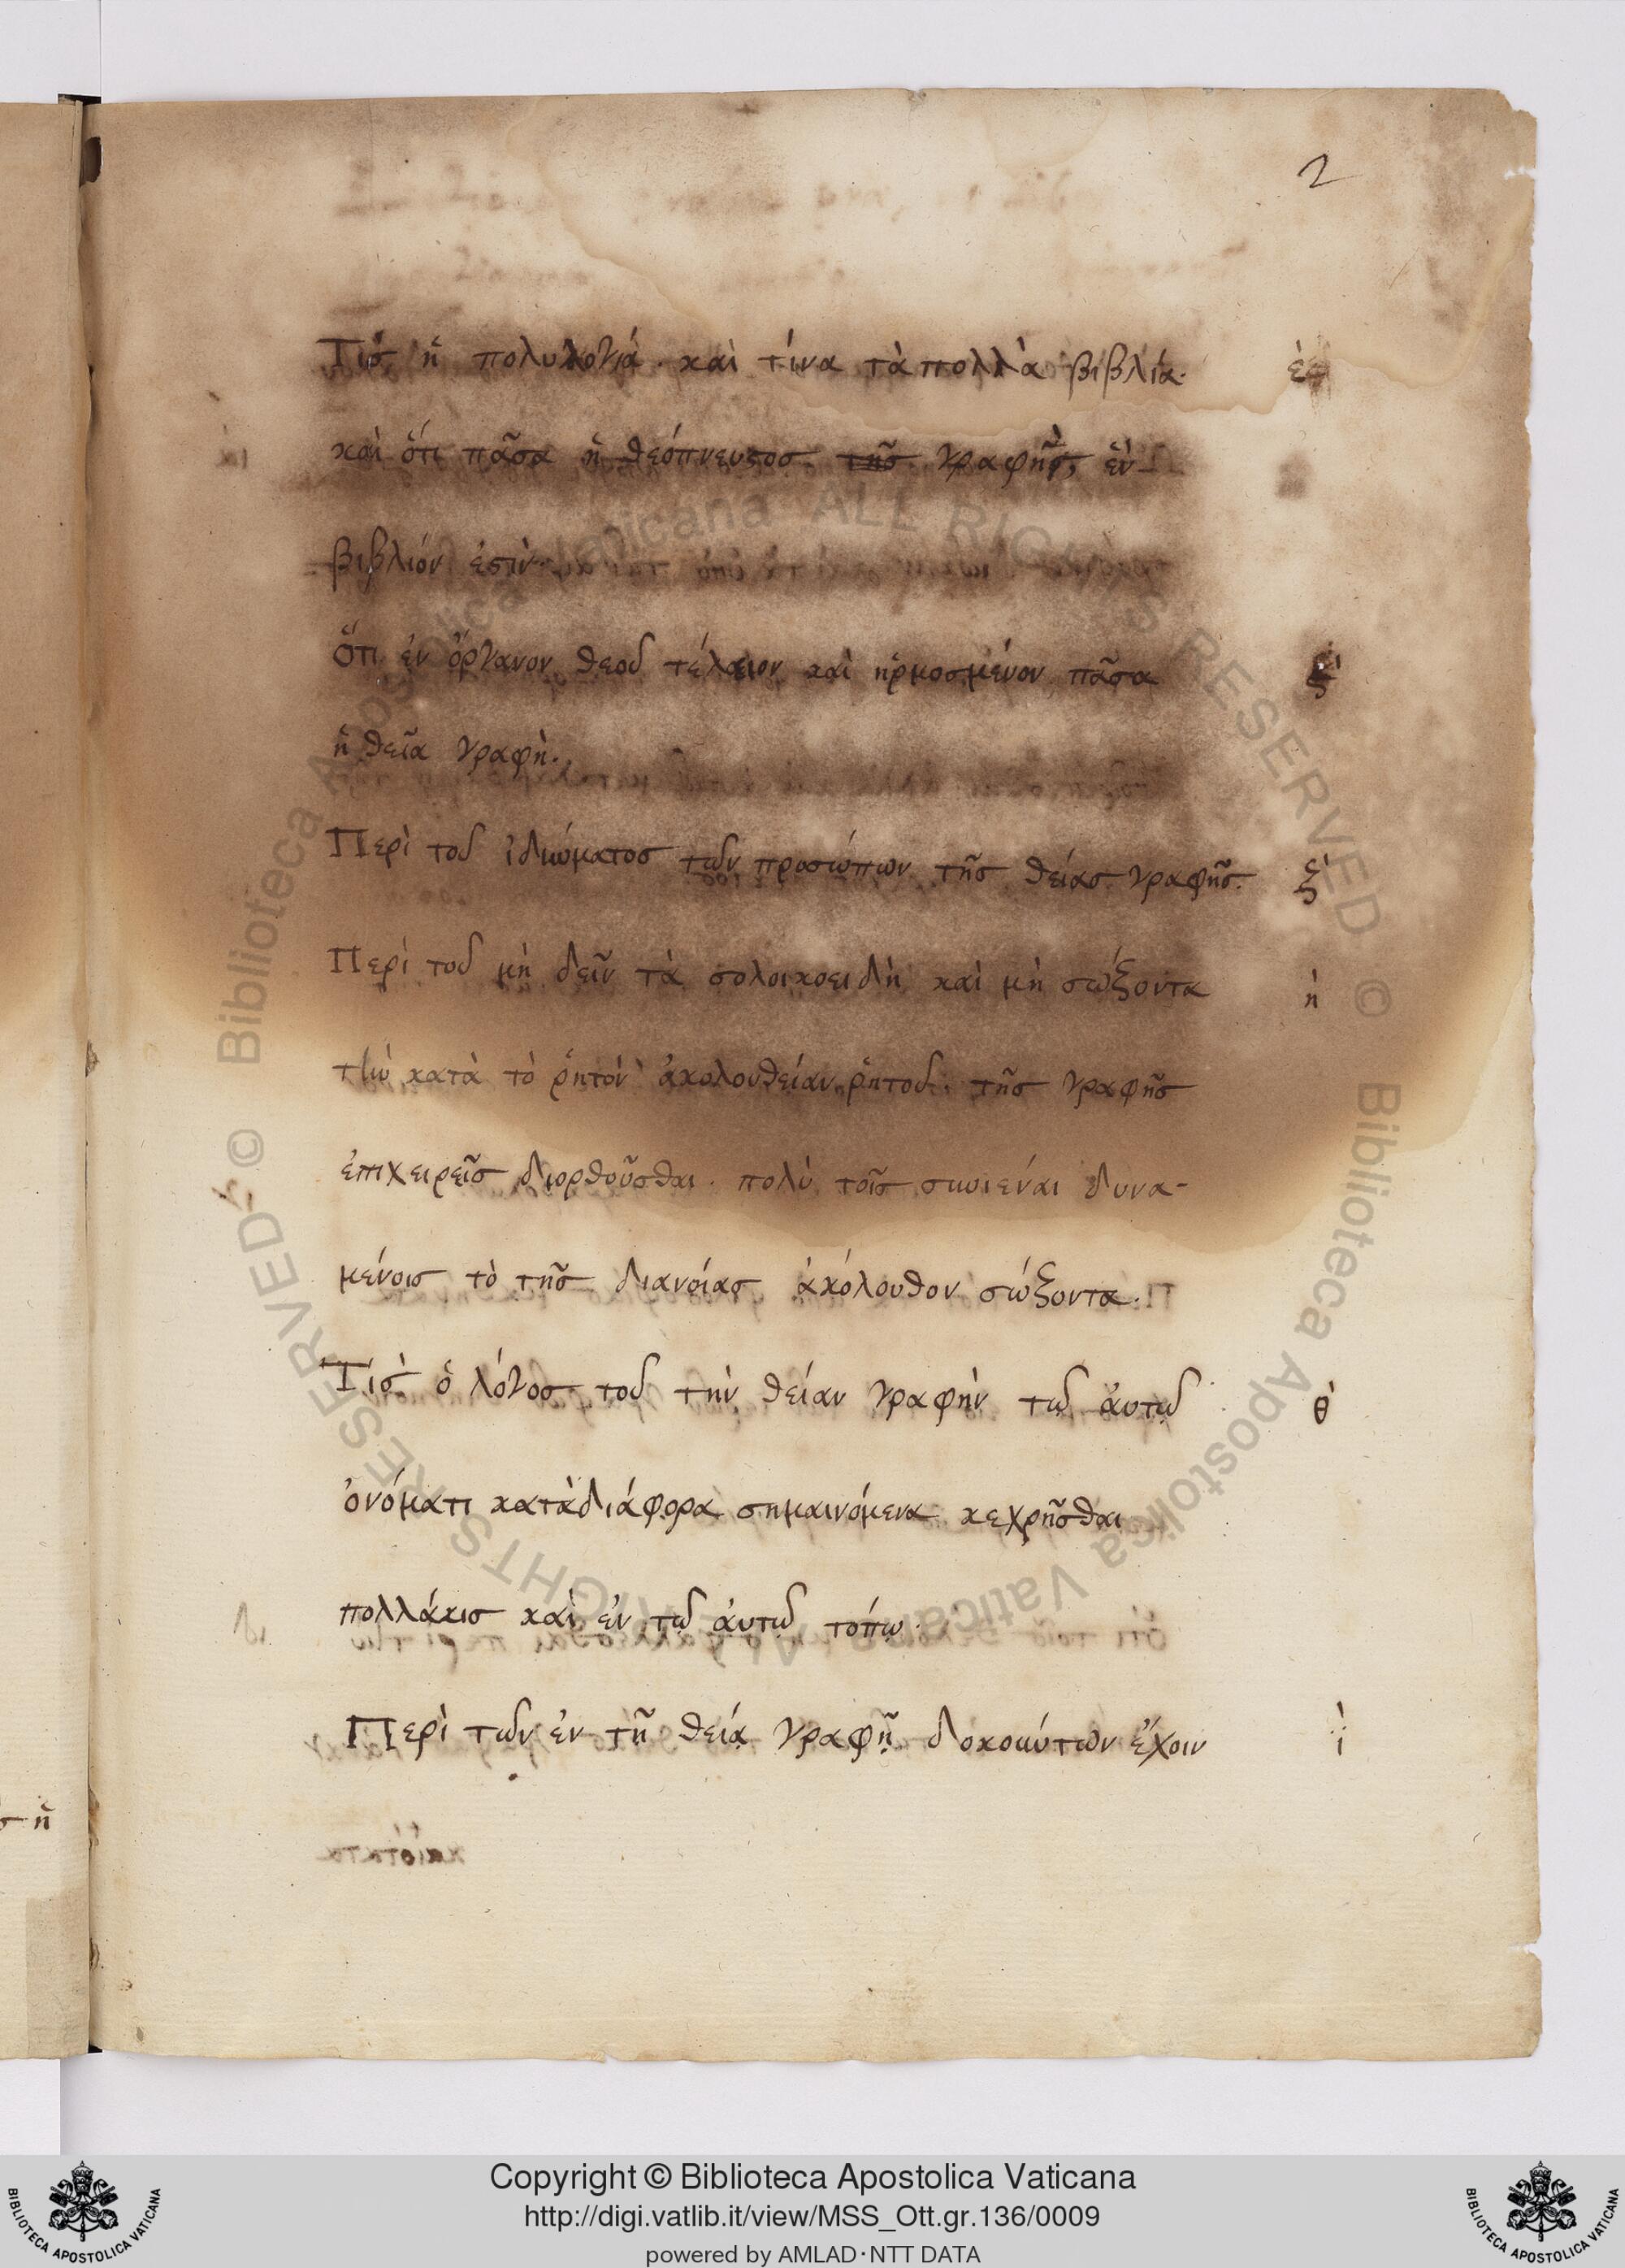 2
Τίσ ἡ πολυλογία. καὶ τίνα τὰ πολλὰ βιβλία. ἐ
καὶ ὅτι πᾶσα ἡ θεόπνευστοσ τῆσ γραφῆσ, ἓν
βιβλιόν ἐστὶν.
Ὅτι ἐν ὄργανον θεοῦ τέλειον καὶ ἡρμοσμένον πᾶσα
ἡ θεῖα γραφὴ.
Περὶ τοῦ ἰδιώματοσ τῶν προσώπων τῆσ θείασ γραφῆσ. ξ
Περὶ τοῦ μὴ δεῖν τὰ σολοικοειδὴ καὶ μὴ σώξοντα ὴ
τὴν κατὰ τὸ ῥητὸν ἀκολουθείαν ῥητοῦ. τῆσ γραφῆσ
ἐπιχειρεῖσ διορθοῦσθαι. πολὺ τοῖσ συνιέναι δυνα-
μένοισ τὸ τῆσ διανοίασ ἀκόλουθον σώξοντα.
Τίσ ὁ λόγοσ τοῦ τὴν θείαν γραφὴν τῷ ἀυτῷ θ
ὀνόματι κατὰ διάφορα σημαινόμενα κεχρῆσθαι
πολλάκισ καὶ ἐν τῷ ἀυτῷ τόπῳ.
Περὶ τῶν ἐν τῇ θείᾳ γραφῇ δοκούντων ἔχοιν ὶ
σ ἡ
Copyright © Biblioteca Apostolica Vaticana
http://digi.vatlib.it/view/MSS_Ott.gr.136/0009
powered by AMLAD·NTT DATA
BIBLIOTECA APOSTOLICA VATICANA
BIBLIOTECA APOSTOLICA VATICANA
© Biblioteca Apostolica Vaticana ALL RIGHTS RESERVED
© Biblioteca Apostolica Vaticana ALL RIGHTS RESERVED